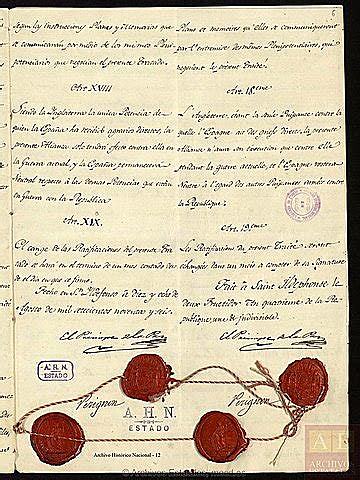 segun las instrucciones Planes y Memorias que
se comunicarán por medio de los mismos Pleni-
potenciarios que negocian el presente Tratado.
Art. XVIII
Siendo la Inglaterra la unica Potencia de
quien la España ha recibido agravios directos, la
presente Alianza solo tendrá efecto contra ella en
la Guerra actual, y la España permanecerá
Neutral respecto á las demas Potencias que están
en Guerra con la Republica
Art. XIX.
El cange de las Ratificaciones del presente Tra-
tado se hará en el termino de un mes contado des-
de el dia en que se firme.
Fecho en Sn. Ildefonso á diez y ocho de
Agosto de mil setecientos noventa y seis
El Principe de la Paz
Perignon
Plans et memoires qu'elles se communiqueront
par l'entremise des mêmes Plenipotentiaires, qui
negocient le présent Traité.
Art. 18eme
L'Angleterre, etant la seule Puissance contre la-
quelle l'Espagne ait des griefs directs, la presente
Alliance n'aura son execution que contre elle
pendant la guerre actuelle, et l'Espagne restera
Neutre à l'egard des autres Puissances armées contre
la Republique.
Art. 19eme
Les Ratifications du present Traité seront
échangées dans un mois à compter de sa Signature
Fait à Saint Ildephonse le
deux Fructidor l'an quatrieme de la Re-
publique, une & indivisible.
El Principe de la Paz
Perignon
A. H. N.
ESTADO
A. H. N.
ESTADO
Archivo Histórico Nacional - 12
© Archivos Estatales, mecd.es
ARCHIVO